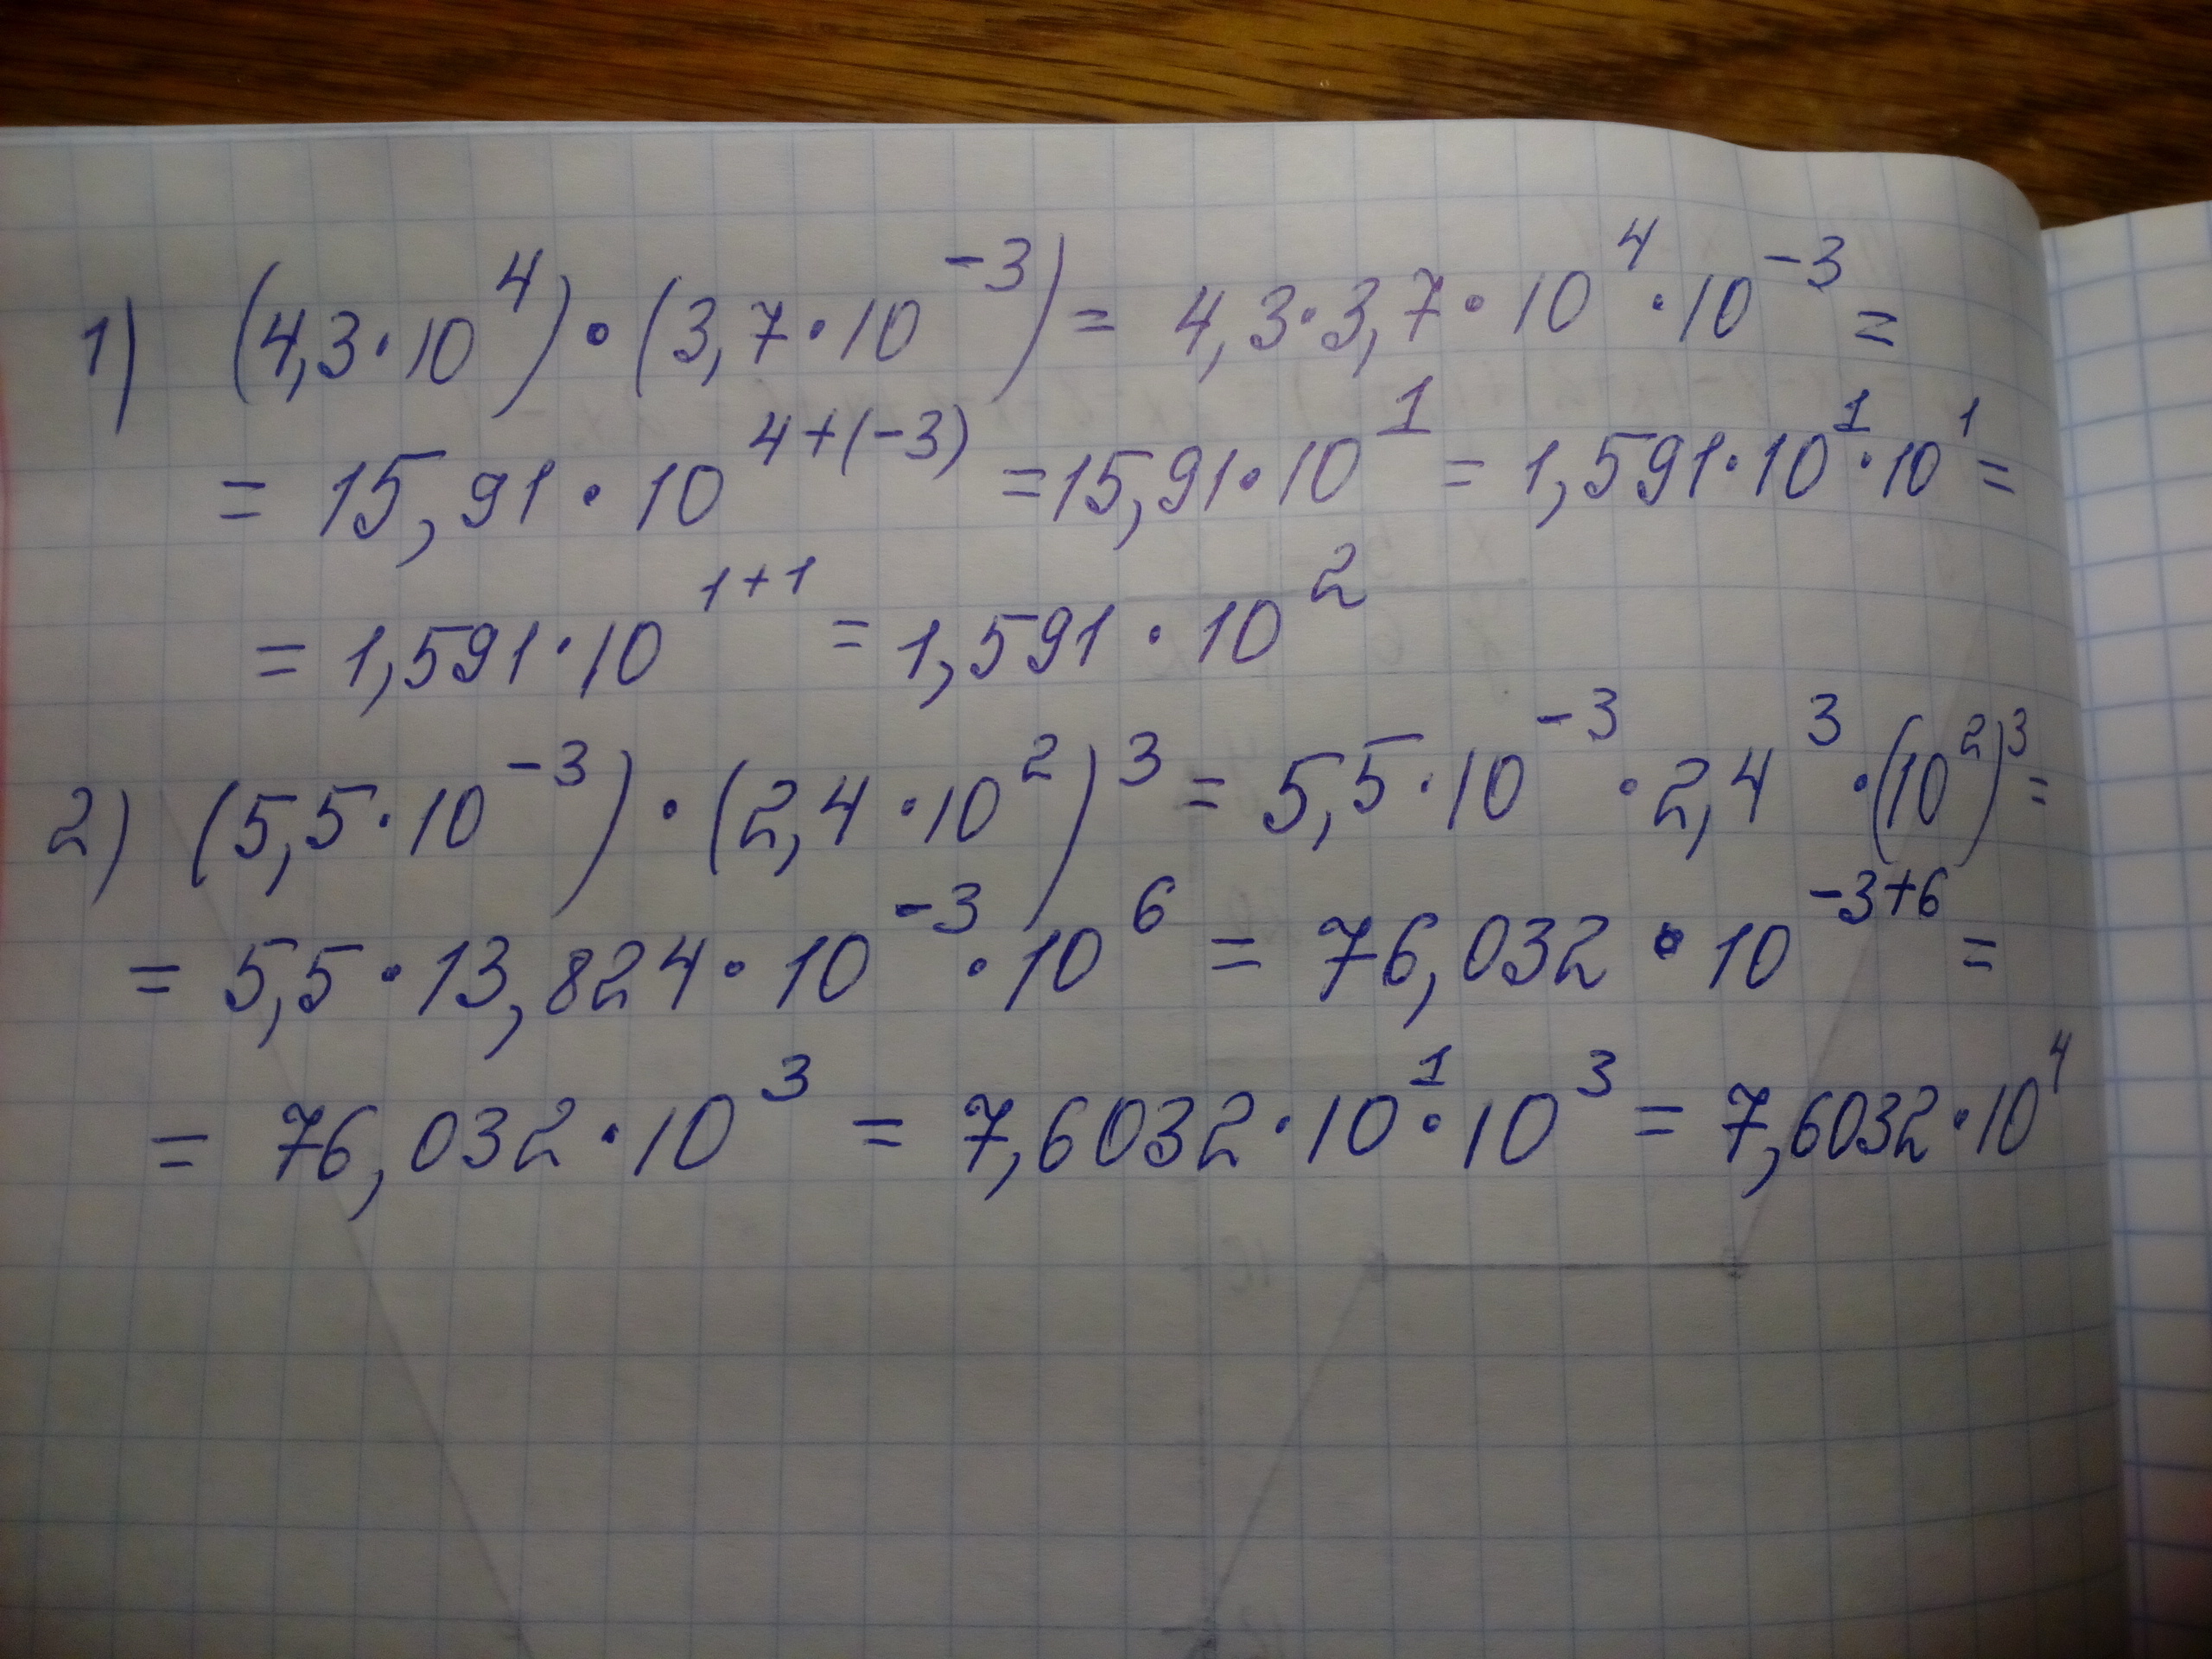 1) (4,3·10⁴)·(3,7·10⁻³) = 4,3·3,7·10⁴·10⁻³ =
= 15,91·10⁴⁺⁽⁻³⁾ = 15,91·10¹ = 1,591·10¹·10¹ =
= 1,591·10¹⁺¹ = 1,591·10²
2) (5,5·10⁻³)·(2,4·10²)³ = 5,5·10⁻³·2,4³·(10²)³ =
= 5,5·13,824·10⁻³·10⁶ = 76,032·10⁻³⁺⁶ =
= 76,032·10³ = 7,6032·10¹·10³ = 7,6032·10⁴